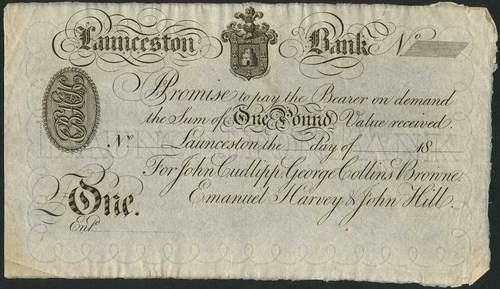 Launceston Bank No
I Promise to pay the Bearer on demand
the Sum of One Pound Value received.
No. Launceston the day of 18
For John Cudlipp, George Collins Browne
Emanuel Harvey & John Hill.
£ One.
Entd.